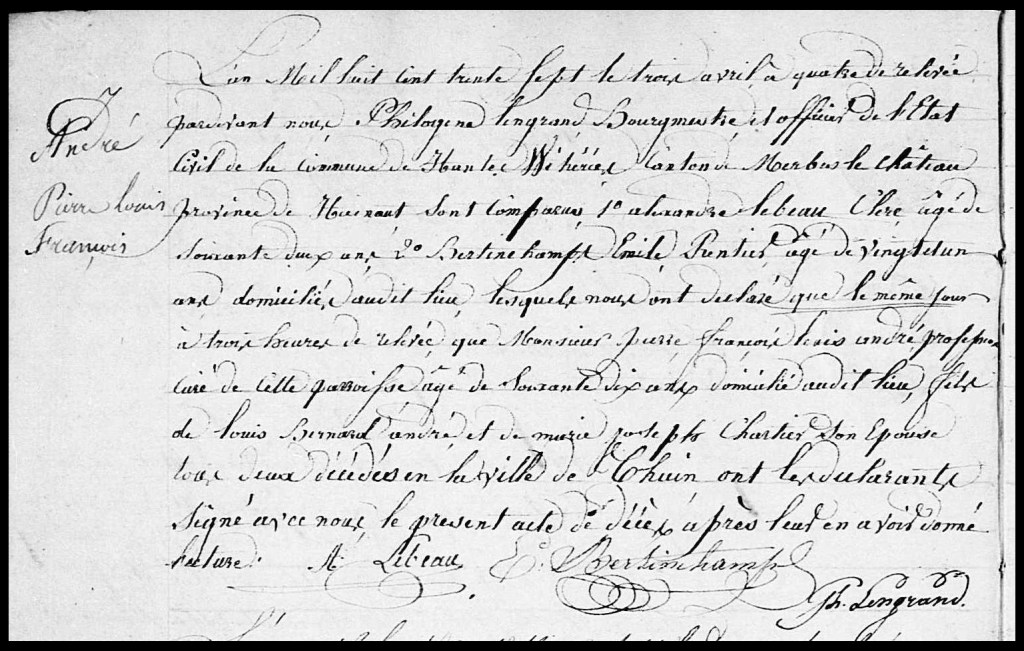 L'an Mil huit cent trente sept le trois avril à quatre de relevée
André
pardevant nous Philogene lengrand Bourgmestre et officier de l'Etat
Civil de la Commune de Hantes Wihéries Canton de Merbes le château
Pierre Louis
François
province de Hainaut sont Comparus 1o alexandre lebeau Clerc âgé de
soixante deux ans 2o Bertinchamps Emile Rentier âgé de vingt et un
ans domiciliés audit lieu lesquels nous ont declaré que le même jour
à trois heures de relevée que Monsieur pierre françois louis andré
Curé de Cette parroisse âgé de soixante dix ans domicilié audit lieu, fils
de louis Bernard andré et de marie joseph Chartier son Epouse
tous deux décédés en la ville de Thuin ont les declarants
signé avec nous le present acte de décès après leur en avoir donné
lecture. A. Lebeau E. Bertinchamps
Ph. Lengrand.